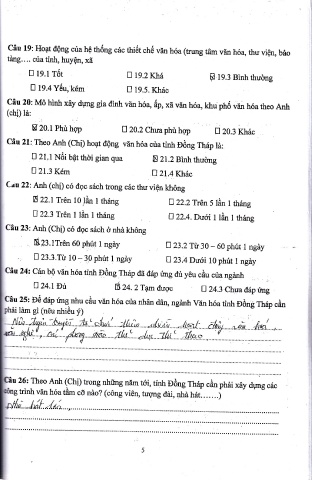 Câu 19: Hoạt động của hệ thống các thiết chế văn hóa (trung tâm văn hóa, thư viện, bảo
tàng.... của tỉnh, huyện, xã
☐ 19.1 Tốt ☐ 19.2 Khá ☒ 19.3 Bình thường
☐ 19.4 Yếu, kém ☐ 19.5. Khác
Câu 20: Mô hình xây dựng gia đình văn hóa, ấp, xã văn hóa, khu phố văn hóa theo Anh
(chị) là:
☒ 20.1 Phù hợp ☐ 20.2 Chưa phù hợp ☐ 20.3 Khác
Câu 21: Theo Anh (Chị) hoạt động văn hóa của tỉnh Đồng Tháp là:
☐ 21.1 Nổi bật thời gian qua ☒ 21.2 Bình thường
☐ 21.3 Kém ☐ 21.4 Khác
Câu 22: Anh (chị) có đọc sách trong các thư viện không
☒ 22.1 Trên 10 lần 1 tháng ☐ 22.2 Trên 5 lần 1 tháng
☐ 22.3 Trên 1 lần 1 tháng ☐ 22.4. Dưới 1 lần 1 tháng
Câu 23: Anh (Chị) có đọc sách ở nhà không
☒ 23.1Trên 60 phút 1 ngày ☐ 23.2 Từ 30 – 60 phút 1 ngày
☐ 23.3.Từ 10 – 30 phút 1 ngày ☐ 23.4 Dưới 10 phút 1 ngày
Câu 24: Cán bộ văn hóa tỉnh Đồng Tháp đã đáp ứng đủ yêu cầu của ngành
☐ 24.1 Đủ ☒ 24. 2 Tạm được ☐ 24.3 Chưa đáp ứng
Câu 25: Để đáp ứng nhu cầu văn hóa của nhân dân, ngành Văn hóa tỉnh Đồng Tháp cần
phải làm gì (nêu nhiều ý)
tuyên truyền tổ chức nhiều hoạt động văn hóa,
văn nghệ, các phong trào thể dục thể thao
Câu 26: Theo Anh (Chị) trong những năm tới, tỉnh Đồng Tháp cần phải xây dựng các
công trình văn hóa tầm cỡ nào? (công viên, tượng đài, nhà hát.......)
nhà hát
5